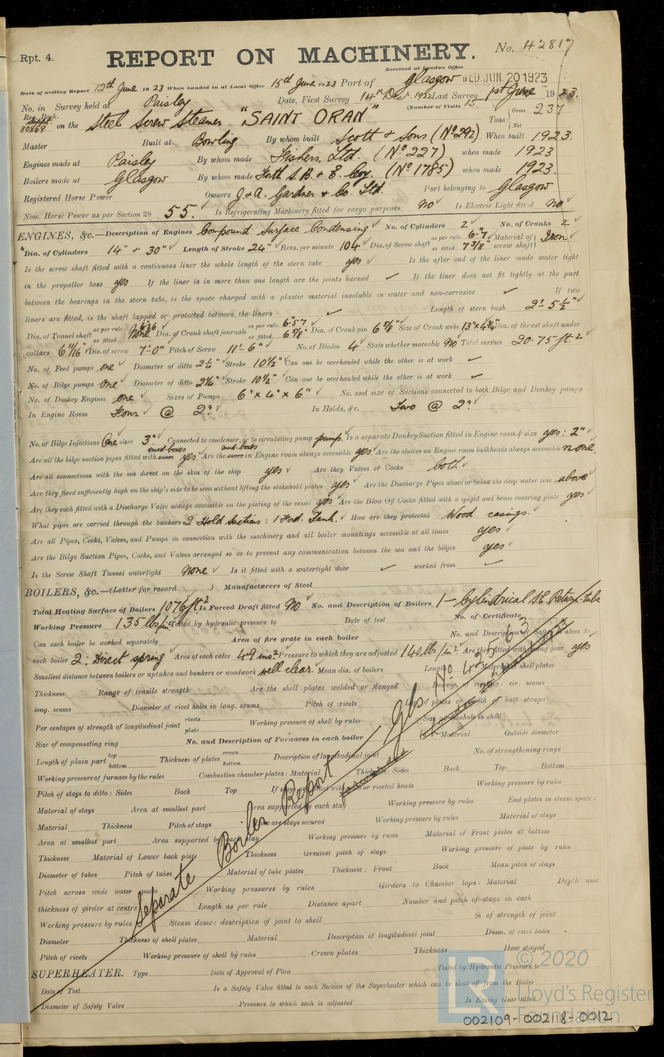 Rpt. 4.
REPORT ON MACHINERY.
No. 42817
Received at London Office
WED. JUN. 20 1923
Date of writing Report 12th June 1923 When handed in at Local Office 15th June 1923 Port of Glasgow
No. in Survey held at Paisley Date, First Survey 14th Dec 1922 Last Survey 1st June 1923.
Reg. Book. (Number of Visits 15
30869 on the Steel Screw Steamer "SAINT ORAN" Tons Gross 237 Net
Master Built at Bowling By whom built Scott & Sons (No 292) When built 1923.
Engines made at Paisley By whom made Fishers Ltd. (No 227) when made 1923
Boilers made at Glasgow By whom made Forth S.B. & E. Coy. (No 1785) when made 1923.
Registered Horse Power Owners J & A. Gardner & Co. Ltd. Port belonging to Glasgow
Nom. Horse Power as per Section 28 55. Is Refrigerating Machinery fitted for cargo purposes No Is Electric Light fitted No
ENGINES, &c.—Description of Engines Compound Surface Condensing No. of Cylinders 2 No. of Cranks 2
Dia. of Cylinders 14" & 30" Length of Stroke 24" Revs. per minute 104 Dia. of Screw shaft as per rule 6.7 as fitted 7 3/8" Material of screw shaft Iron
Is the screw shaft fitted with a continuous liner the whole length of the stern tube yes Is the after end of the liner made water tight
in the propeller boss yes If the liner is in more than one length are the joints burned ✓ If the liner does not fit tightly at the part
between the bearings in the stern tube, is the space charged with a plastic material insoluble in water and non-corrosive ✓ If two
liners are fitted, is the shaft lapped or protected between the liners ✓ Length of stern bush 2'-5½"
Dia. of Tunnel shaft as per rule as fitted None Dia. of Crank shaft journals as per rule 6.57 as fitted 6 7/8" Dia. of Crank pin 6 7/8" Size of Crank webs 13"x4⅜" Dia. of thrust shaft under
collars 6 11/16" Dia. of screw 7'-0" Pitch of Screw 11'-6" No. of Blades 4 State whether moveable No Total surface 20.75 ft²
No. of Feed pumps one Diameter of ditto 2½" Stroke 10½" Can one be overhauled while the other is at work ✓
No. of Bilge pumps one Diameter of ditto 2½" Stroke 10½" Can one be overhauled while the other is at work ✓
No. of Donkey Engines one Sizes of Pumps 6" x 4" x 6" No. and size of Suctions connected to both Bilge and Donkey pumps
In Engine Room Four @ 2" In Holds, &c. Two @ 2"
No. of Bilge Injections One sizes 3" Connected to condenser, or to circulating pump pump. Is a separate Donkey Suction fitted in Engine room & size yes: 2"
Are all the bilge suction pipes fitted with mud-boxes yes Are the mud-boxes in Engine room always accessible yes Are the sluices on Engine room bulkheads always accessible none
Are all connections with the sea direct on the skin of the ship yes Are they Valves or Cocks both
Are they fixed sufficiently high on the ship's side to be seen without lifting the stokehold plates yes Are the Discharge Pipes above or below the deep water line above
Are they each fitted with a Discharge Valve always accessible on the plating of the vessel yes Are the Blow Off Cocks fitted with a spigot and brass covering plate yes
What pipes are carried through the bunkers 2 Hold Suctions: 1 Ford. Tank. How are they protected Wood casings.
Are all Pipes, Cocks, Valves, and Pumps in connection with the machinery and all boiler mountings accessible at all times yes
Are the Bilge Suction Pipes, Cocks, and Valves arranged so as to prevent any communication between the sea and the bilges yes
Is the Screw Shaft Tunnel watertight None Is it fitted with a watertight door ✓ worked from ✓
BOILERS, &c.—(Letter for record ) Manufacturers of Steel
Total Heating Surface of Boilers 1076 ft² Is Forced Draft fitted No No. and Description of Boilers 1 - Cylindrical S.E. Return tube
Working Pressure 135 lbs Tested by hydraulic pressure to Date of test No. of Certificate
Can each boiler be worked separately Area of fire grate in each boiler No. and Description of Safety Valves to
each boiler 2: Direct spring Area of each valve 4.9 ins.² Pressure to which they are adjusted 140 lbs/in² Are they fitted with easing gear yes
Smallest distance between boilers or uptakes and bunkers or woodwork well clear. Mean dia. of boilers Length Material of shell plates
Thickness Range of tensile strength Are the shell plates welded or flanged Descrip. of riveting: cir. seams
long. seams Diameter of rivet holes in long. seams Pitch of rivets Lap of plates or width of butt straps
Per centages of strength of longitudinal joint rivets plate Working pressure of shell by rules Size of manhole in shell
Size of compensating ring No. and Description of Furnaces in each boiler Material Outside diameter
Length of plain part top bottom Thickness of plates crown bottom Description of longitudinal joint No. of strengthening rings
Working pressure of furnace by the rules Combustion chamber plates: Material Thickness: Sides Back Top Bottom
Pitch of stays to ditto: Sides Back Top If stays are fitted with nuts or riveted heads Working pressure by rules
Material of stays Area at smallest part Area supported by each stay Working pressure by rules End plates in steam space:
Material Thickness Pitch of stays How are stays secured Working pressure by rules Material of stays
Area at smallest part Area supported by each stay Working pressure by rules Material of Front plates at bottom
Thickness Material of Lower back plate Thickness Greatest pitch of stays Working pressure of plate by rules
Diameter of tubes Pitch of tubes Material of tube plates Thickness: Front Back Mean pitch of stays
Pitch across wide water spaces Working pressures by rules Girders to Chamber tops: Material Depth and
thickness of girder at centre Length as per rule Distance apart Number and pitch of stays in each
Working pressure by rules Steam dome: description of joint to shell % of strength of joint
Diameter Thickness of shell plates Material Description of longitudinal joint Diam. of rivet holes
Pitch of rivets Working pressure of shell by rules Crown plates Thickness How stayed
SUPERHEATER. Type Date of Approval of Plan Tested by Hydraulic Pressure to
Date of Test Is a Safety Valve fitted to each Section of the Superheater which can be shut off from the Boiler
Diameter of Safety Valve Pressure to which each is adjusted Is Easing Gear fitted
Separate Boiler Report Gls No
© 2020
LR
Lloyd's Register
Foundation
002109-002118-0012